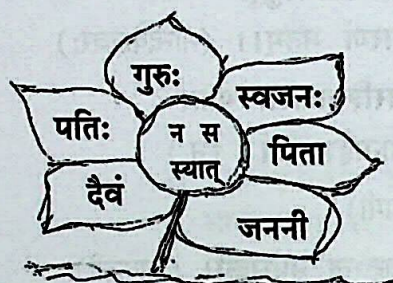 गुरुः
स्वजनः
पतिः
न स
स्यात्
पिता
दैवं
जननी